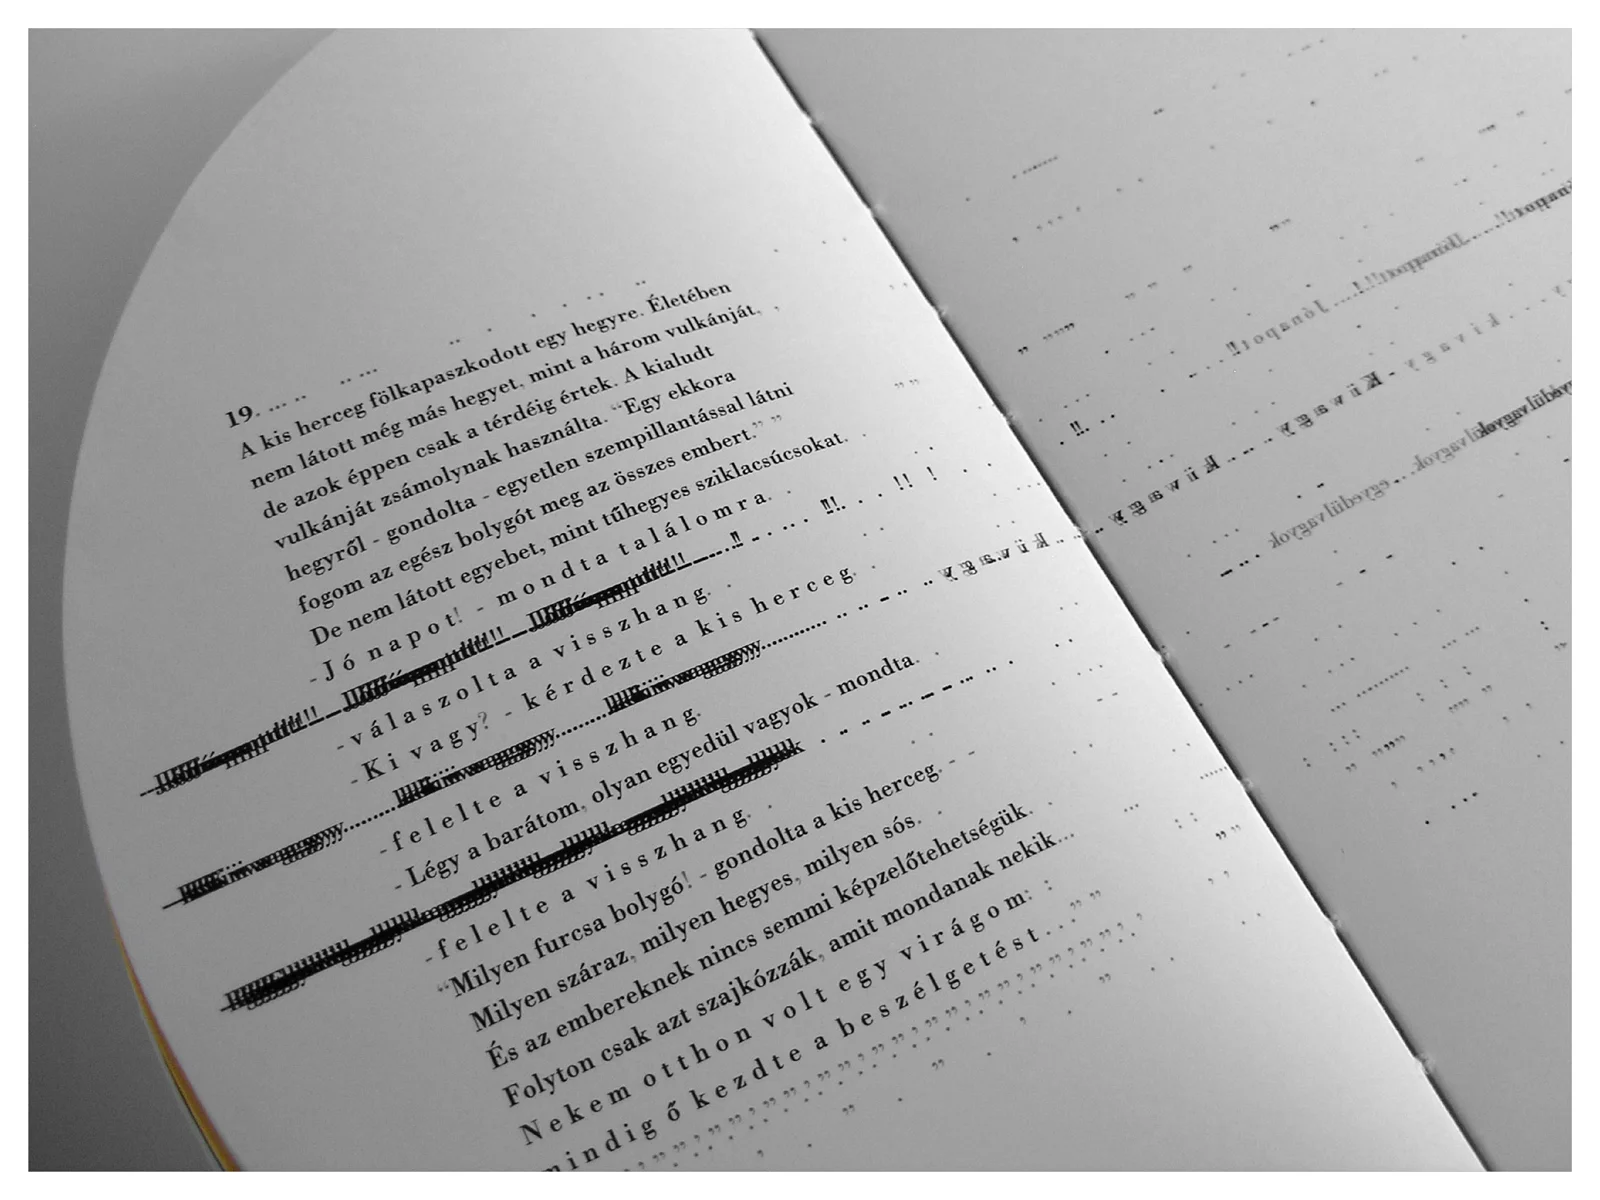 19.
A kis herceg fölkapaszkodott egy hegyre. Életében
nem látott még más hegyet, mint a három vulkánját,
de azok éppen csak a térdéig értek. A kialudt
vulkánját zsámolynak használta. “Egy ekkora
hegyről - gondolta - egyetlen szempillantással látni
fogom az egész bolygót meg az összes embert.”
De nem látott egyebet, mint tűhegyes sziklacsúcsokat.
- Jó napot! - mondta találomra.
- válaszolta a visszhang.
- Ki vagy? - kérdezte a kis herceg.
- felelte a visszhang.
- Légy a barátom, olyan egyedül vagyok - mondta.
- felelte a visszhang.
“Milyen furcsa bolygó! - gondolta a kis herceg. -
Milyen száraz, milyen hegyes, milyen sós.
És az embereknek nincs semmi képzelőtehetségük.
Folyton csak azt szajkózzák, amit mondanak nekik...
Nekem otthon volt egy virágom:
mindig ő kezdte a beszélgetést...”